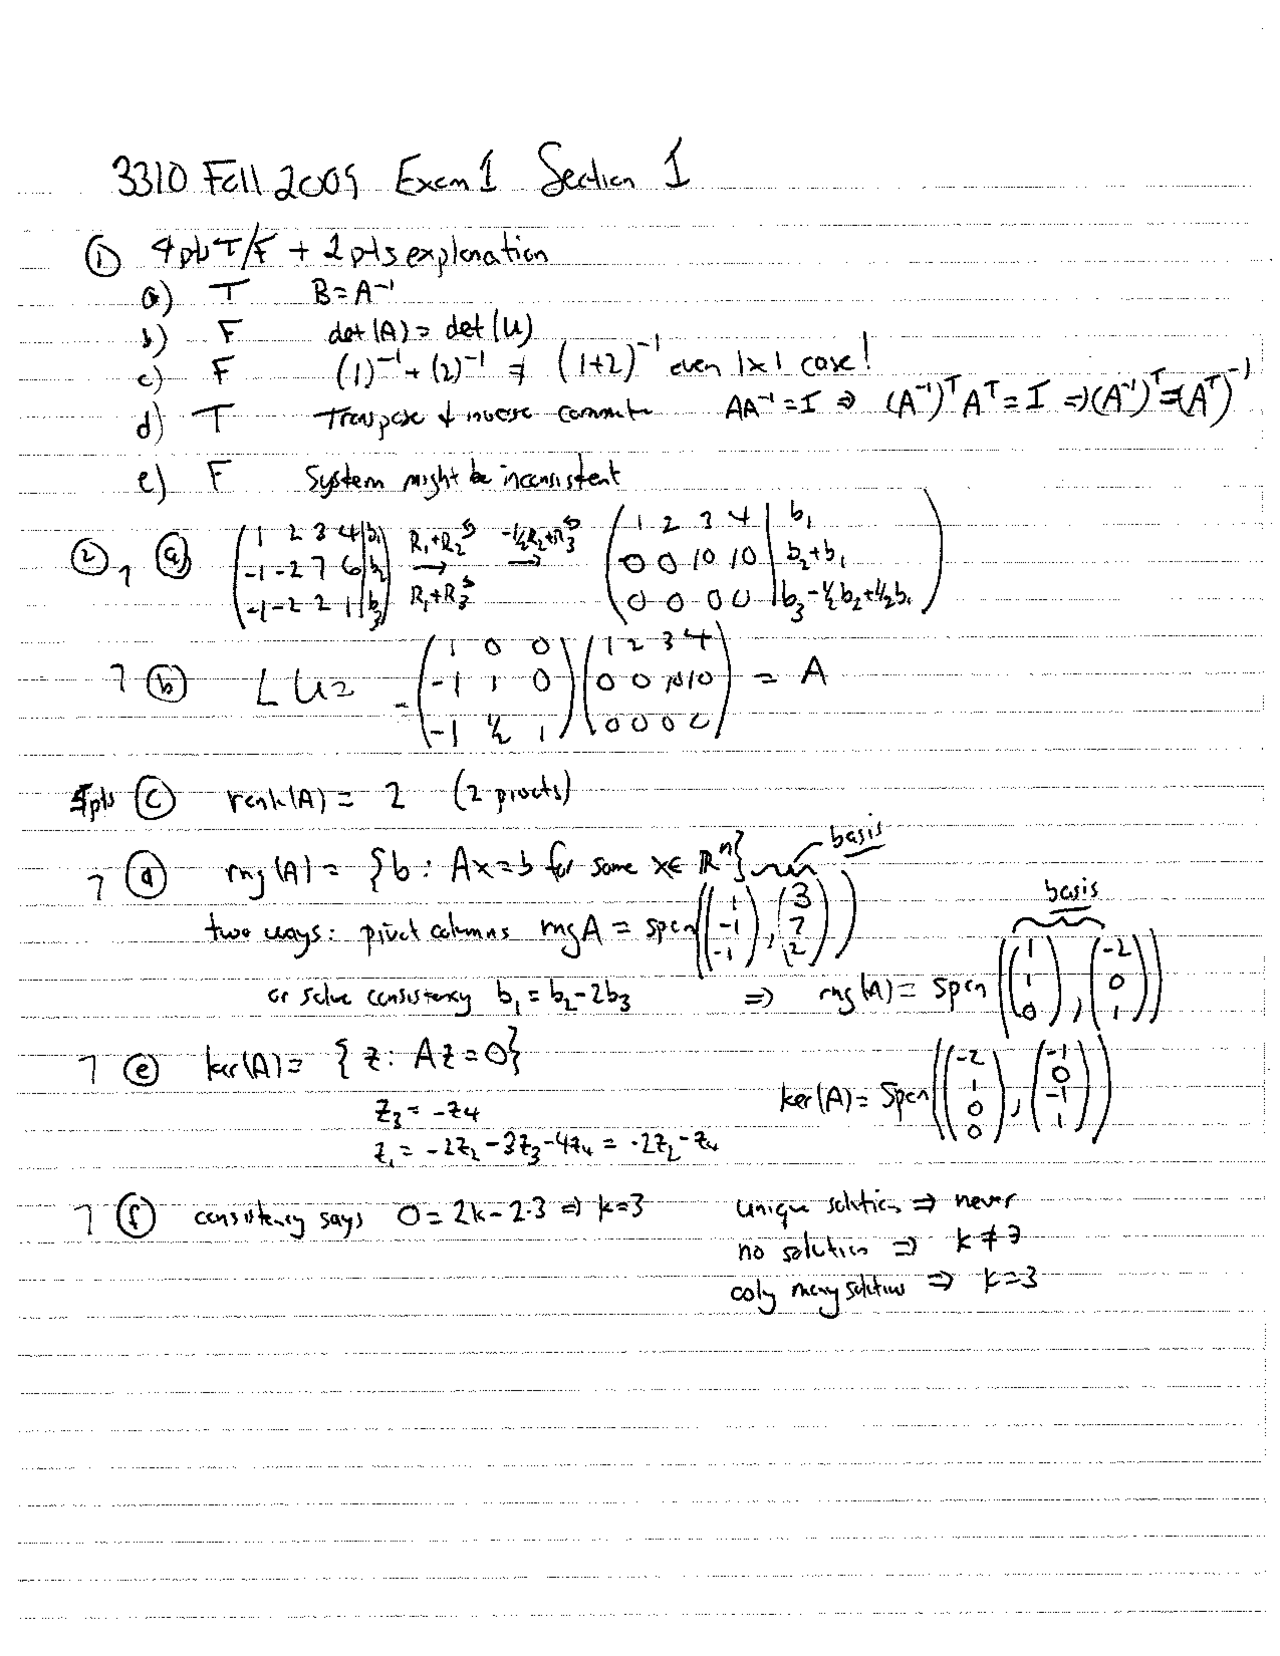 3310 Fall 2009 Exam 1 Section 1
① 4 pts T/F + 2 pts explanation
a) T B = A⁻¹
b) F det(A) = det(U)
c) F (1)⁻¹ + (2)⁻¹ ≠ (1+2)⁻¹ even 1x1 case!
d) T Transpose & inverse commute AA⁻¹ = I ⇒ (A⁻¹)ᵀAᵀ = I ⇒ (A⁻¹)ᵀ = (Aᵀ)⁻¹
e) F System might be inconsistent
② 7 ⓐ (1 2 3 4 | b₁; -1 -2 7 6 | b₂; -1 -2 2 1 | b₃) R₁+R₂ R₁+R₃ → -½R₂+R₃ → (1 2 3 4 | b₁; 0 0 10 10 | b₂+b₁; 0 0 0 0 | b₃-½b₂+½b₁)
7 ⓑ LU = (1 0 0; -1 1 0; -1 ½ 1)(1 2 3 4; 0 0 10 10; 0 0 0 0) = A
5pts ⓒ rank(A) = 2 (2 pivots)
7 ⓓ rng(A) = {b : Ax = b for some x ∈ ℝⁿ} basis
two ways: pivot columns rng A = span((1; -1; -1), (3; 7; 2)) basis
or solve consistency b₁ = b₂ - 2b₃ ⇒ rng(A) = span((1; 1; 0), (-2; 0; 1))
7 ⓔ ker(A) = {z : Az = 0}
z₃ = -z₄ ker(A) = span((-2; 1; 0; 0), (-1; 0; -1; 1))
z₁ = -2z₂ - 3z₃ - 4z₄ = -2z₂ - z₄
7 ⓕ consistency says 0 = 2k - 2·3 ⇒ k = 3 unique solution ⇒ never
no solution ⇒ k ≠ 3
∞ly many solutions ⇒ k = 3